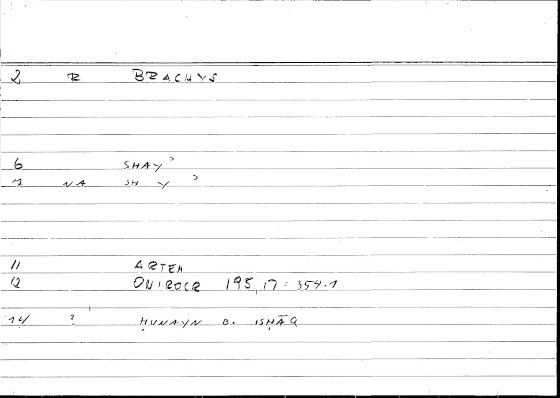 2 R BRACHYS
6 SHAYʾ
7 NA SH Y ʾ
11 ARTEM
12 ONIROCR 195,17 = 354.1
14 ? ḤUNAYN B. ISḤĀQ